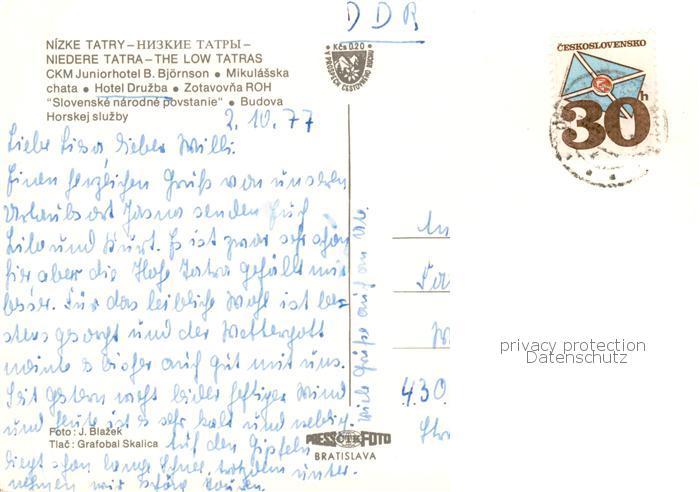 DDR
NÍZKE TATRY – НИЗКИЕ ТАТРЫ –
NIEDERE TATRA – THE LOW TATRAS
CKM Juniorhotel B. Björnson • Mikulášska
chata • Hotel Družba • Zotavovňa ROH
"Slovenské národné povstanie" • Budova
Horskej služby
Kčs 0,20
V PROSPECH CESTOVNÉHO RUCHU
ČESKOSLOVENSKO
30 h
2.10.77
Liebe Lisa lieber Willi.
Einen herzlichen Gruß von unseren
Urlaubsort Jasna senden Euch
Lilo und Kurt. Es ist zwar sehr schön
hier aber die Hohe Tatra gefällt mir
besser. Für das leibliche Wohl ist be-
stens gesorgt und der Wettergott
meinte es bisher auch gut mit uns.
Seit gestern weht leider heftiger Wind
und heute ist es sehr kalt und neblig.
Auf den Gipfeln
liegt schon lange Schnee, trotzdem unter-
nehmen wir schöne Touren.
Viele Grüße auch an
Fa
430
Foto: J. Blažek
Tlač: Grafobal Skalica
PRESS ČTK FOTO
BRATISLAVA
privacy protection
Datenschutz